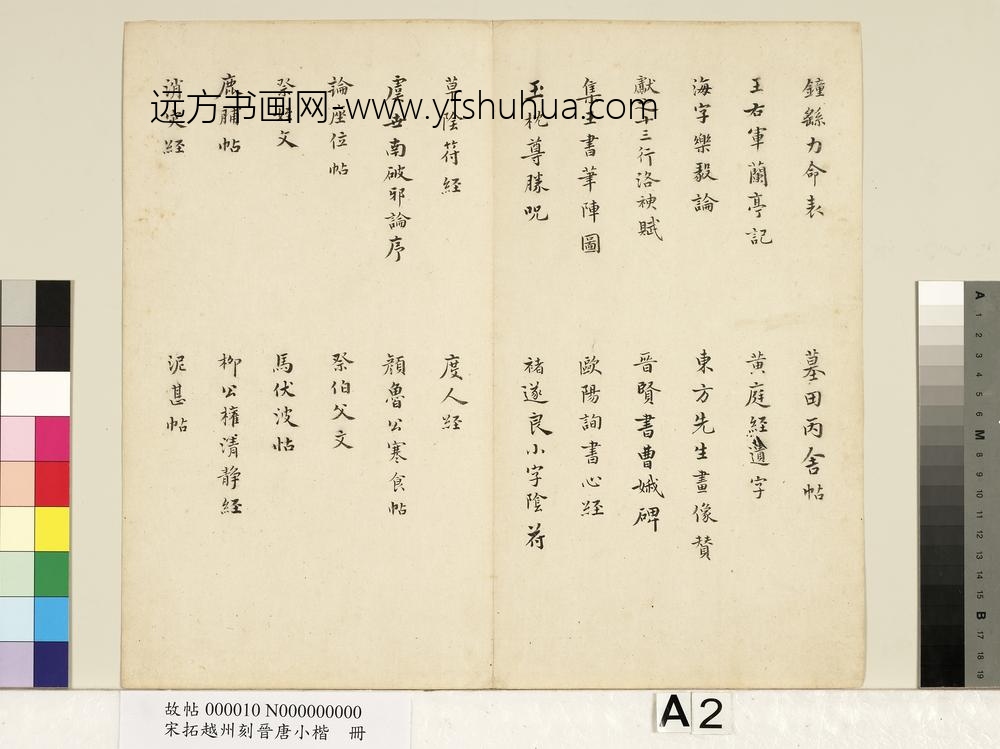 鐘繇力命表
墓田丙舍帖
王右軍蘭亭記
黃庭經遺字
海字樂毅論
東方先生畫像贊
獻十三行洛神賦
晉賢書曹娥碑
集王書筆陣圖
歐陽詢書心経
玉枕尊勝呪
褚遂良小字陰符
草陰符經
度人経
虞世南破邪論序
顏魯公寒食帖
論座位帖
祭伯父文
祭姪文
馬伏波帖
鹿脯帖
柳公權清靜経
消災経
泥甚帖
远方书画网-www.yfshuhua.com
故帖 000010 N000000000
宋拓越州刻晉唐小楷 冊
A2
A
1
2
3
4
5
6
M
8
9
10
11
12
13
14
15
B
17
18
19